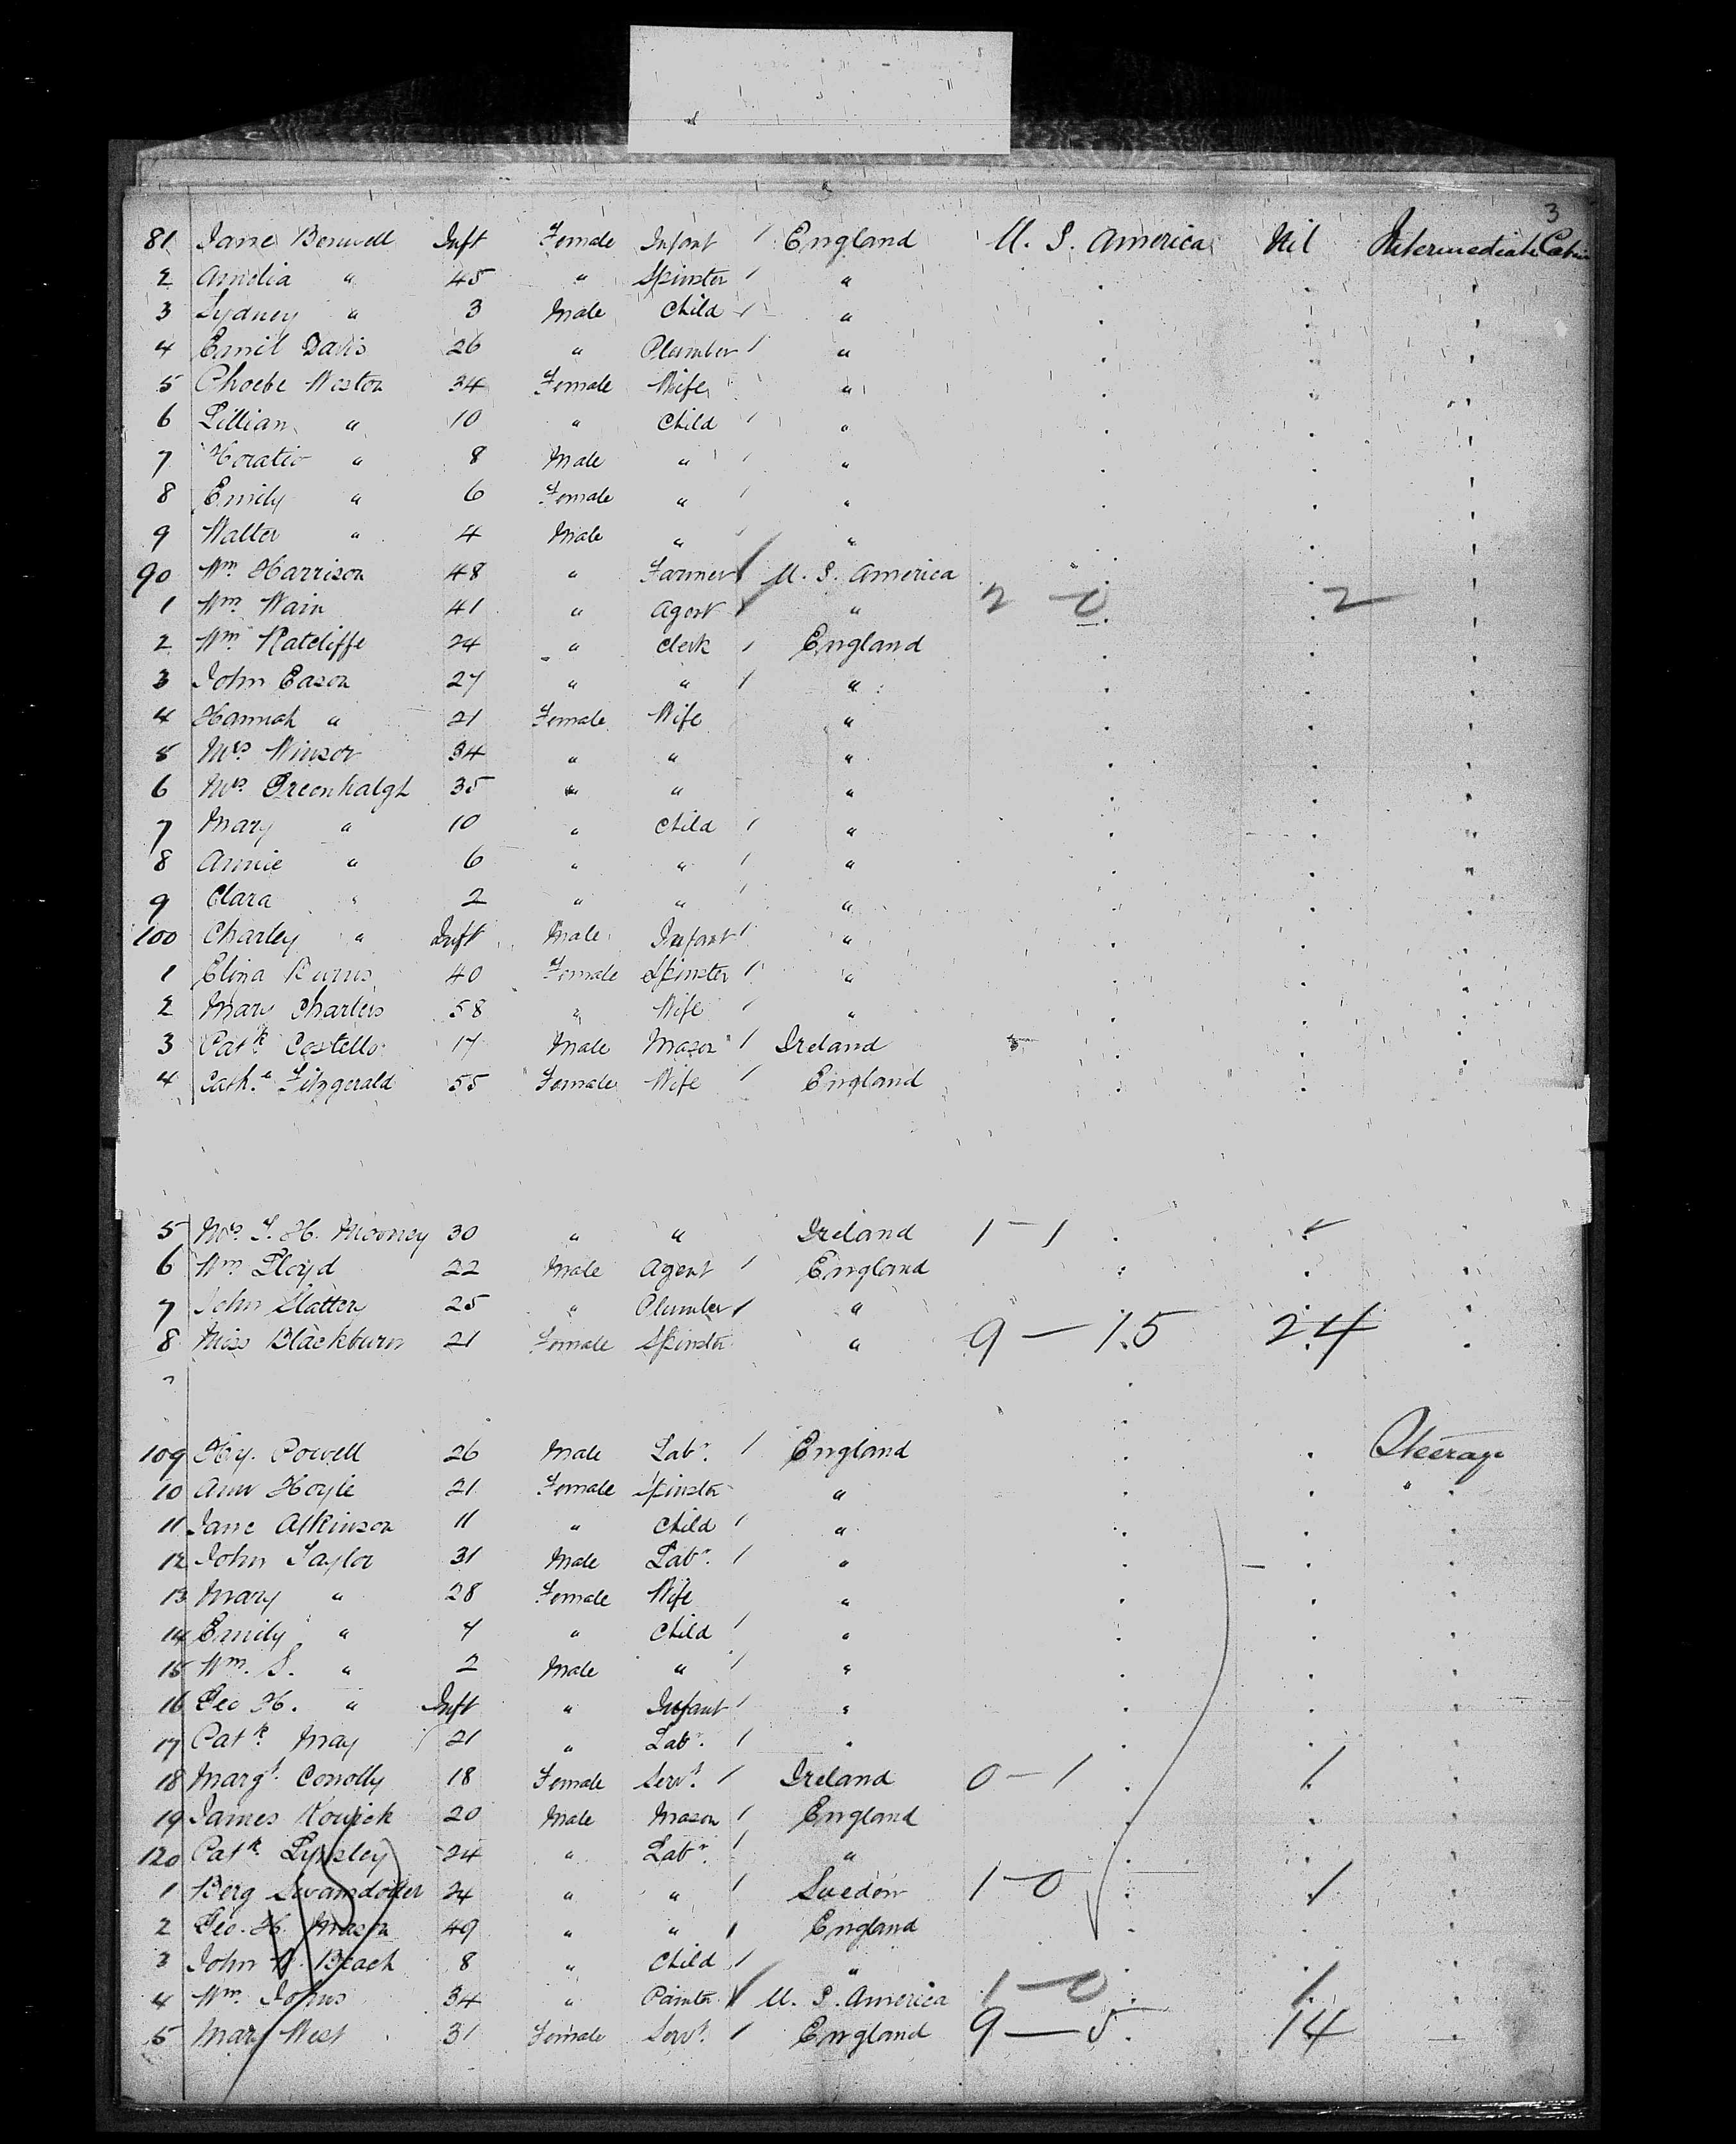 3
81 Jane Benwell Inft Female Infant / England U. S. America Nil Intermediate Cabin
2 Amelia " 45 " Spinster / "
3 Sydney " 3 Male Child / "
4 Emil Davis 26 " Plumber / "
5 Phoebe Weston 34 Female Wife "
6 Lillian " 10 " Child / "
7 Horatio " 8 Male " / "
8 Emily " 6 Female " / "
9 Walter " 4 Male " / "
90 Wm Harrison 48 " Farmer / U. S. America
1 Wm Wain 41 " Agent / " 2 - 0 2
2 Wm Ratcliffe 24 " Clerk / England
3 John Eason 27 " " / "
4 Hannah " 21 Female Wife "
5 Mrs Winsor 34 " " "
6 Mrs Greenhalgh 35 " " "
7 Mary " 10 " Child / "
8 Annie " 6 " " / "
9 Clara " 2 " " / "
100 Charley " Inft Male Infant / "
1 Eliza Burns 40 Female Spinster / "
2 Mary Charters 58 " Wife / "
3 Patk Costello 17 Male Mason / Ireland
4 Cathe Fitzgerald 55 Female Wife / England
5 Mrs T. H. Mooney 30 " " Ireland 1 - 1
6 Wm Lloyd 22 Male Agent / England
7 John Slattery 25 " Plumber / "
8 Miss Blackburn 21 Female Spinster " 9 - 15 24
109 Hy. Powell 26 Male Labr. / England Steerage
10 Ann Hoyle 21 Female Spinster " "
11 Jane Atkinson 11 " Child / "
12 John Taylor 31 Male Labr. / "
13 Mary " 28 Female Wife "
14 Emily " 4 " Child / "
15 Wm. S. " 2 Male " / "
16 Geo H. " Inft " Infant / "
17 Patk May 21 " Labr. / "
18 Margt. Conolly 18 Female Servt. / Ireland 0 - 1 1
19 James 20 Male Mason / England
120 Patk 24 " Labr. / "
1 Berg 24 " " / Sweden 1 - 0 1
2 Geo. H. Mason 49 " " / England
3 John Beach 8 " Child / "
4 Wm. Johns 34 " Painter / U. S. America 1 - 0 1
5 Mary West 31 Female Servt. / England 9 - 5 14